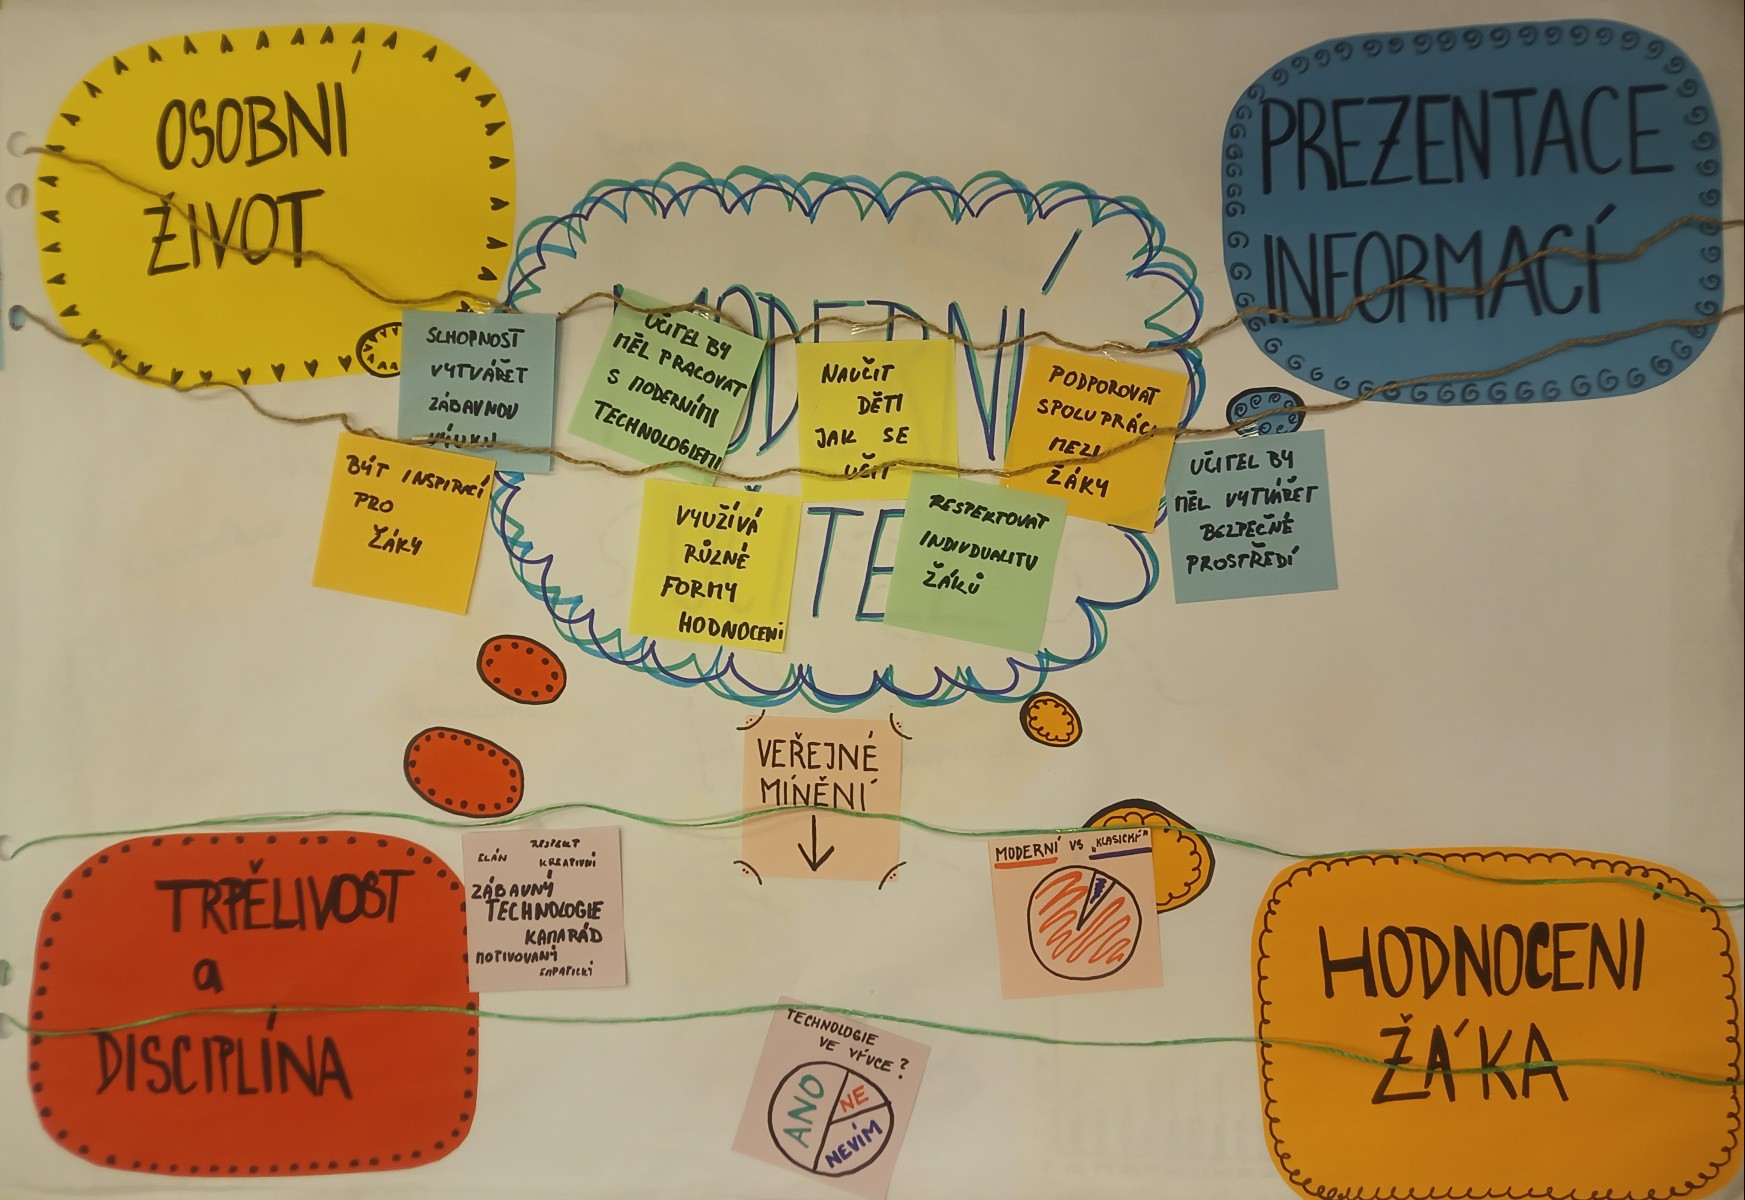 OSOBNÍ
ŽIVOT
PREZENTACE
INFORMACÍ
MODERNÍ
SCHOPNOST
VYTVÁŘET
ZÁBAVNOU
VÝUKU
UČITEL BY
MĚL PRACOVAT
S MODERNÍMI
TECHNOLOGIEMI
NAUČIT
DĚTI
JAK SE
UČIT
PODPOROVAT
SPOLUPRÁCI
MEZI
ŽÁKY
BÝT INSPIRACÍ
PRO
ŽÁKY
VYUŽÍVÁ
RŮZNÉ
FORMY
HODNOCENÍ
RESPEKTOVAT
INDIVDUALITU
ŽÁKŮ
UČITEL BY
MĚL VYTVÁŘET
BEZPEČNÉ
PROSTŘEDÍ
VEŘEJNÉ
MÍNĚNÍ
TRPĚLIVOST
a
DISCIPLÍNA
RESPEKT
ELÁN KREATIVNÍ
ZÁBAVNÝ
TECHNOLOGIE
KAMARÁD
MOTIVOVANÝ
EMPATICKÝ
MODERNÍ VS „KLASICKÝ"
TECHNOLOGIE
VE VÝUCE?
ANO
NE
NEVÍM
HODNOCENI
ŽÁKA